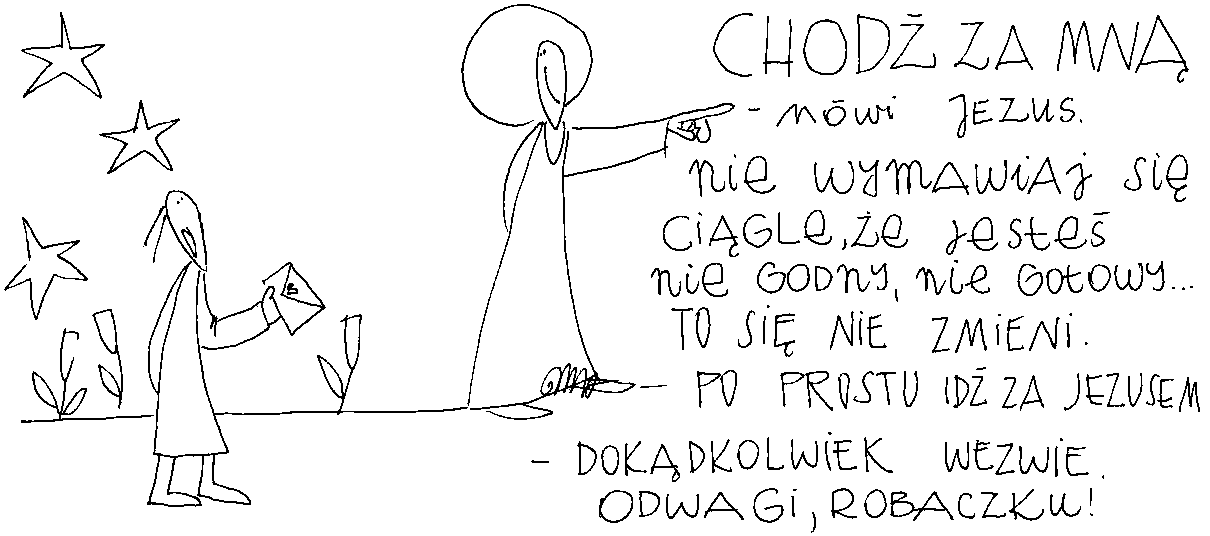 CHODŹ ZA MNĄ
- MÓWI JEZUS.
NIE WYMAWIAJ SIĘ
CIĄGLE, ŻE JESTEŚ
NIE GODNY, NIE GOTOWY...
TO SIĘ NIE ZMIENI.
- PO PROSTU IDŹ ZA JEZUSEM
- DOKĄDKOLWIEK WEZWIE.
ODWAGI, ROBACZKU!